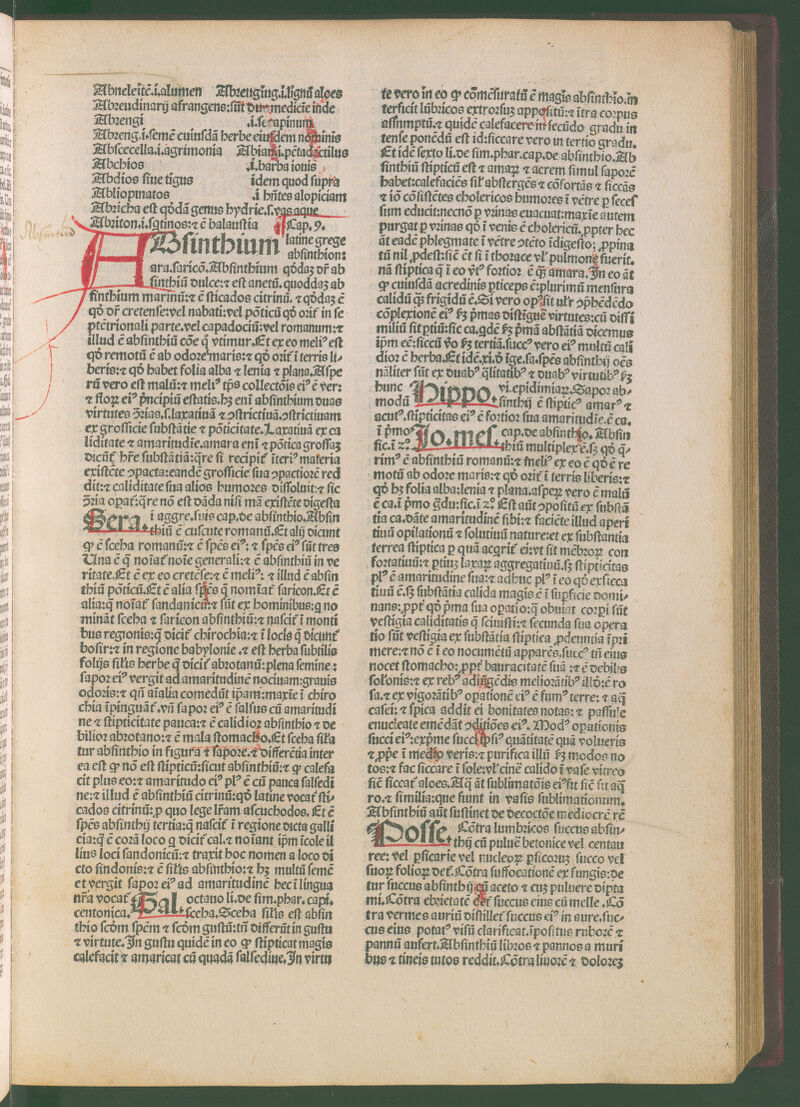 Abneleitē.i.alumen Abzeugingi.i.lignū aloes
Abzeudinarij afrangens:sūt due medicie inde
Abzengi .i.serapinum
Abzeng.i.semē cuiusdā herbe eiusdem nominis
Absceccella.i.agrimonia Abiani.i.pētadactilus
Abchios .i.barba iouis
Abdios siue tigus idem quod supra
Ablioptinatos .i hn̄tes alopiciam
Abzicha est qddā genus hydrie.s.vas aque
Abziton.i.sqtinos:⁊ ē balaustia Cap. 9.
Absinthiū
ABsinthium latine grege
absinthion:
ara.saricō.Absinthium qddaʒ dr̄ ab
sinthiū dulce:⁊ est anetū.quoddaʒ ab
sinthium marinū:⁊ ē sticados citrinū. ⁊ qddaʒ ē
qd dr̄ cretense:vel nabati:vel pōticū qd orit̄ in se
ptētrionali parte.vel capadociū:vel romanum:⁊
illud ē absinthiū cōe q̄ vtimur.Et ex eo meliꝰ est
qd remotū ē ab odore maris:⁊ qd orit̄ ī terris li-
beris:⁊ qd habet folia alba ⁊ lenia ⁊ plana.Aspe
rū vero est malū:⁊ meliꝰ tp̄s collectōis eiꝰ ē ver:
⁊ floꝝ eiꝰ p̄ncipiū estatis.hʒ enī absinthium duas
virtutes ꝯ̄rias.s.laxatiuā ⁊ ꝯstrictiuā.ꝯstrictiuam
ex grossicie substātie ⁊ pōticitate.Laxatiuā ex ca
liditate ⁊ amaritudīe.amara enī ⁊ pōtica grossaʒ
dicūt̄ hr̄e substātiā:q̄re si recipit̄ īteriꝰ materia
existēte ꝯpacta:eandē grossicie sua ꝯpactiorē red
dit:⁊ caliditate sua alios humores dissoluit:⁊ sic
ꝯ̄ria opat̄:q̄re nō est dāda nisi mā existēte digesta
Sera. ī aggre.suis cap.de absinthio.Absin
thiū ē cuscute romanū.Et alij dicunt
ꝙ ē sceha romanū:⁊ ē spēs eiꝰ: ⁊ spēs eiꝰ sūt tres
Una ē q̄ noīat̄ noīe generali:⁊ ē absinthiū in ve
ritate.Et ē ex eo cretēse:⁊ ē meliꝰ: ⁊ illud ē absin
thiū pōticū.Et ē alia spēs q̄ nomīat̄ saricon.Et ē
alia:q̄ noīat̄ sandanicū:⁊ sūt ex hominibus:q̄ no
mināt sceha ⁊ saricon absinthiū:⁊ nascit̄ ī monti
bus regionis:q̄ dicit̄ chirochia:⁊ ī locis q̄ dicunt̄
bosir:⁊ in regione babylonie.⁊ est herba subtilis
folijs sil̄is herbe q̄ dicit̄ abzotanū:plena semine:
sapor eiꝰ vergit ad amaritudinē nocinam:grauis
odoris:⁊ qn̄ aīalia comedūt ip̄am:maxīe ī chiro
chia īpinguāt̄.vn̄ sapor eiꝰ ē salsus cū amaritudi
ne ⁊ stipticitate pauca:⁊ ē calidior absinthio ⁊ de
bilior abzotano:⁊ ē mala stomacho.Et sceha sila
tur absinthio in figura ⁊ sapore.⁊ differētia inter
ea est ꝙ nō est stipticū:sicut absinthiū:⁊ ꝙ calefa
cit plus eo:⁊ amaritudo eiꝰ plꝰ ē cū panca salsedi
ne:⁊ illud ē absinthiū citrinū:qd latine vocat̄ sti-
cados citrinū:ꝓ quo lege lr̄am ascuchodos. Et ē
spēs absinthij tertia:q̄ nascit̄ ī regione dicta galli
cia:q̄ ē corā loco q̄ dicit̄ cal.⁊ noīant ip̄m īcole il
lius loci sandonicū:⁊ traxit hoc nomen a loco di
cto sindonis:⁊ ē sil̄is absinthio:⁊ hʒ multū semē
et vergit sapor eiꝰ ad amaritudinē hec ī lingua
nr̄a vocat̄ Gal. octauo li.de sim.phar. capi.
centonica. sceha.Sceha sil̄is est absin
thio scōm spēm ⁊ scōm gustū:tn̄ differūt in gustu
⁊ virtute.In gustu quidē in eo ꝙ stipticat magis
calefacit ⁊ amaricat cū quadā salsedine.In virtu
te vero in eo ꝙ cōmēsuratū ē magis absinthio.in
terficit lūbricos extrorsuʒ appositū:⁊ ītra corpus
assumptū.⁊ quidē calefacere in secūdo gradu in
tense ponēdū est id:siccare vero in tertio gradu.
Et idē sexto li.de sim.phar.cap.de absinthio.Ab
sinthiū stipticū est ⁊ amaꝝ ⁊ acrem simul saporē
habet:calefaciēs sil̄ abstergēs ⁊ cōfortās ⁊ siccās
⁊ iō cōsistētes cholericos humores ī vētre ꝑ seces
sum educit:necnō ꝑ vrinas euacuat:maxīe autem
purgat ꝑ vrinas qd ī venis ē cholericū.ꝓpter hec
āt eadē phlegmate ī vētre ꝯtēto īdigesto: ꝓpina
tū nil ꝓdest:sic̄ ⁊ si ī thorace vl̓ pulmone fuerit.
nā stiptica q̄ ī eo vt̓ꝰ fortior ē q̄ amara.In eo āt
ꝙ cuiusdā acredinis pticeps ē:plurimū mensura
calidū q̄ frigidū ē.Si vero op̄sit vlr̄ ꝯp̄hēdēdo
cōplexionē eiꝰ ⁊ hʒ p̄mas distīgue virtutes:cū dissi
miliū sit ptiū:sic ca.qdē hʒ p̄mā abstātiā dicemus
ip̄m eē:siccū v̓o hʒ tertiā.succꝰ vero eiꝰ multū cali
dior ē herba.Et idē.xi.ō īge.sa.spēs absinthij oēs
nāliter sūt ex duabꝰ q̄litatibꝰ ⁊ duabꝰ virtutibꝰ hʒ
hunc Hippo. vi.epidimiaꝝ.Sapor ab-
modū sinthij ē stipticꝰ amarꝰ ⁊
acutꝰ.stipticitas eiꝰ ē fortior sua amaritudīe.ē ca.
ī p̄moꝰ Jo.mes. cap.de absinthio. Absin
sic.ī 2º. thiū multiplex ē.sʒ qd q̄-
rimꝰ ē absinthiū romanū:⁊ meliꝰ ex eo ē qd ē re
motū ab odore maris:⁊ qd orit̄ ī terris liberis:⁊
qd hʒ folia alba:lenia ⁊ plana.aspeꝝ vero ē malū
ē ca.ī p̄mo ḡdu:sic.ī 2º.Est aūt ꝯpositū ex substā
tia ca.dāte amaritudinē sibi:⁊ faciēte illud aperi
tiuū opilationū ⁊ solutiuū nature:et ex substantia
terrea stiptica ꝑ quā acq̄rit ei:vt sit mēbroꝝ con
fortatiuū:⁊ ptiuʒ laxaꝝ aggregatiuū.sʒ stipticitas
plꝰ ē amaritudine sua:⁊ adhuc plꝰ ī eo qd exsicca
tiuū ē.sʒ substātia calida magis ē ī supficie domi-
nans:ꝓpt̄ qd p̄ma sua opatio:q̄ obuiat corpi sūt
vestigia caliditatis q̄ sciuisti:⁊ secunda sua opera
tio sūt vestigia ex substātia stiptica ꝓdeuntia īpri
mere:⁊ nō ē ī eo nocumētū apparēs.succꝰ tn̄ eius
nocet stomacho:ꝓpt̄ bauracitatē suā :⁊ ē debilis
solōnis:⁊ ex rebꝰ adiūgēdis melioratibꝰ illd:ē ro
sa.⁊ ex vigorātibꝰ opationē eiꝰ ē fumꝰ terre: ⁊ aq̄
casei: ⁊ spica addit ei bonitates notas: ⁊ passule
enucleate emēdāt ꝯditiōes eiꝰ. Modꝰ opationis
succi eiꝰ:exp̄me succi ip̄siꝰ quātitatē quā volueris
⁊ ꝓpe ī medio veris:⁊ purifica illū hʒ modos no
tos:⁊ fac siccare ī sole:vl̓ cinē calido ī vase vitreo
sic̄ siccat̄ aloes.Aq̄ āt sublimatōis eiꝰ fit sic̄ fit aq̄
ro.⁊ similia:que fiunt in vasis sublimationum.
Absinthiū aūt sustinet de decoctōe mediocrē rē
Posse. Cōtra lumbricos succus absin-
thij cū puluē betonice vel centau
ree: vel ꝑsicarie vel nucleoꝝ ꝑsicoruʒ succo vel
suoꝝ folioꝝ det̄.Cōtra suffocationē ex fungis:de
tur succus absinthij cū aceto ⁊ cuʒ puluere dipta
mi.Cōtra ebrietatē det̄ succus eius cū melle .Cō
tra vermes auriū distillet̄ succus eiꝰ in aure.suc-
cus eius potatꝰ visū clarificat.īpositus ruborē ⁊
pannū aufert.Absinthiū libros ⁊ pannos a muri
bus ⁊ tineis tutos reddit.Cōtra liuorē ⁊ dolorez